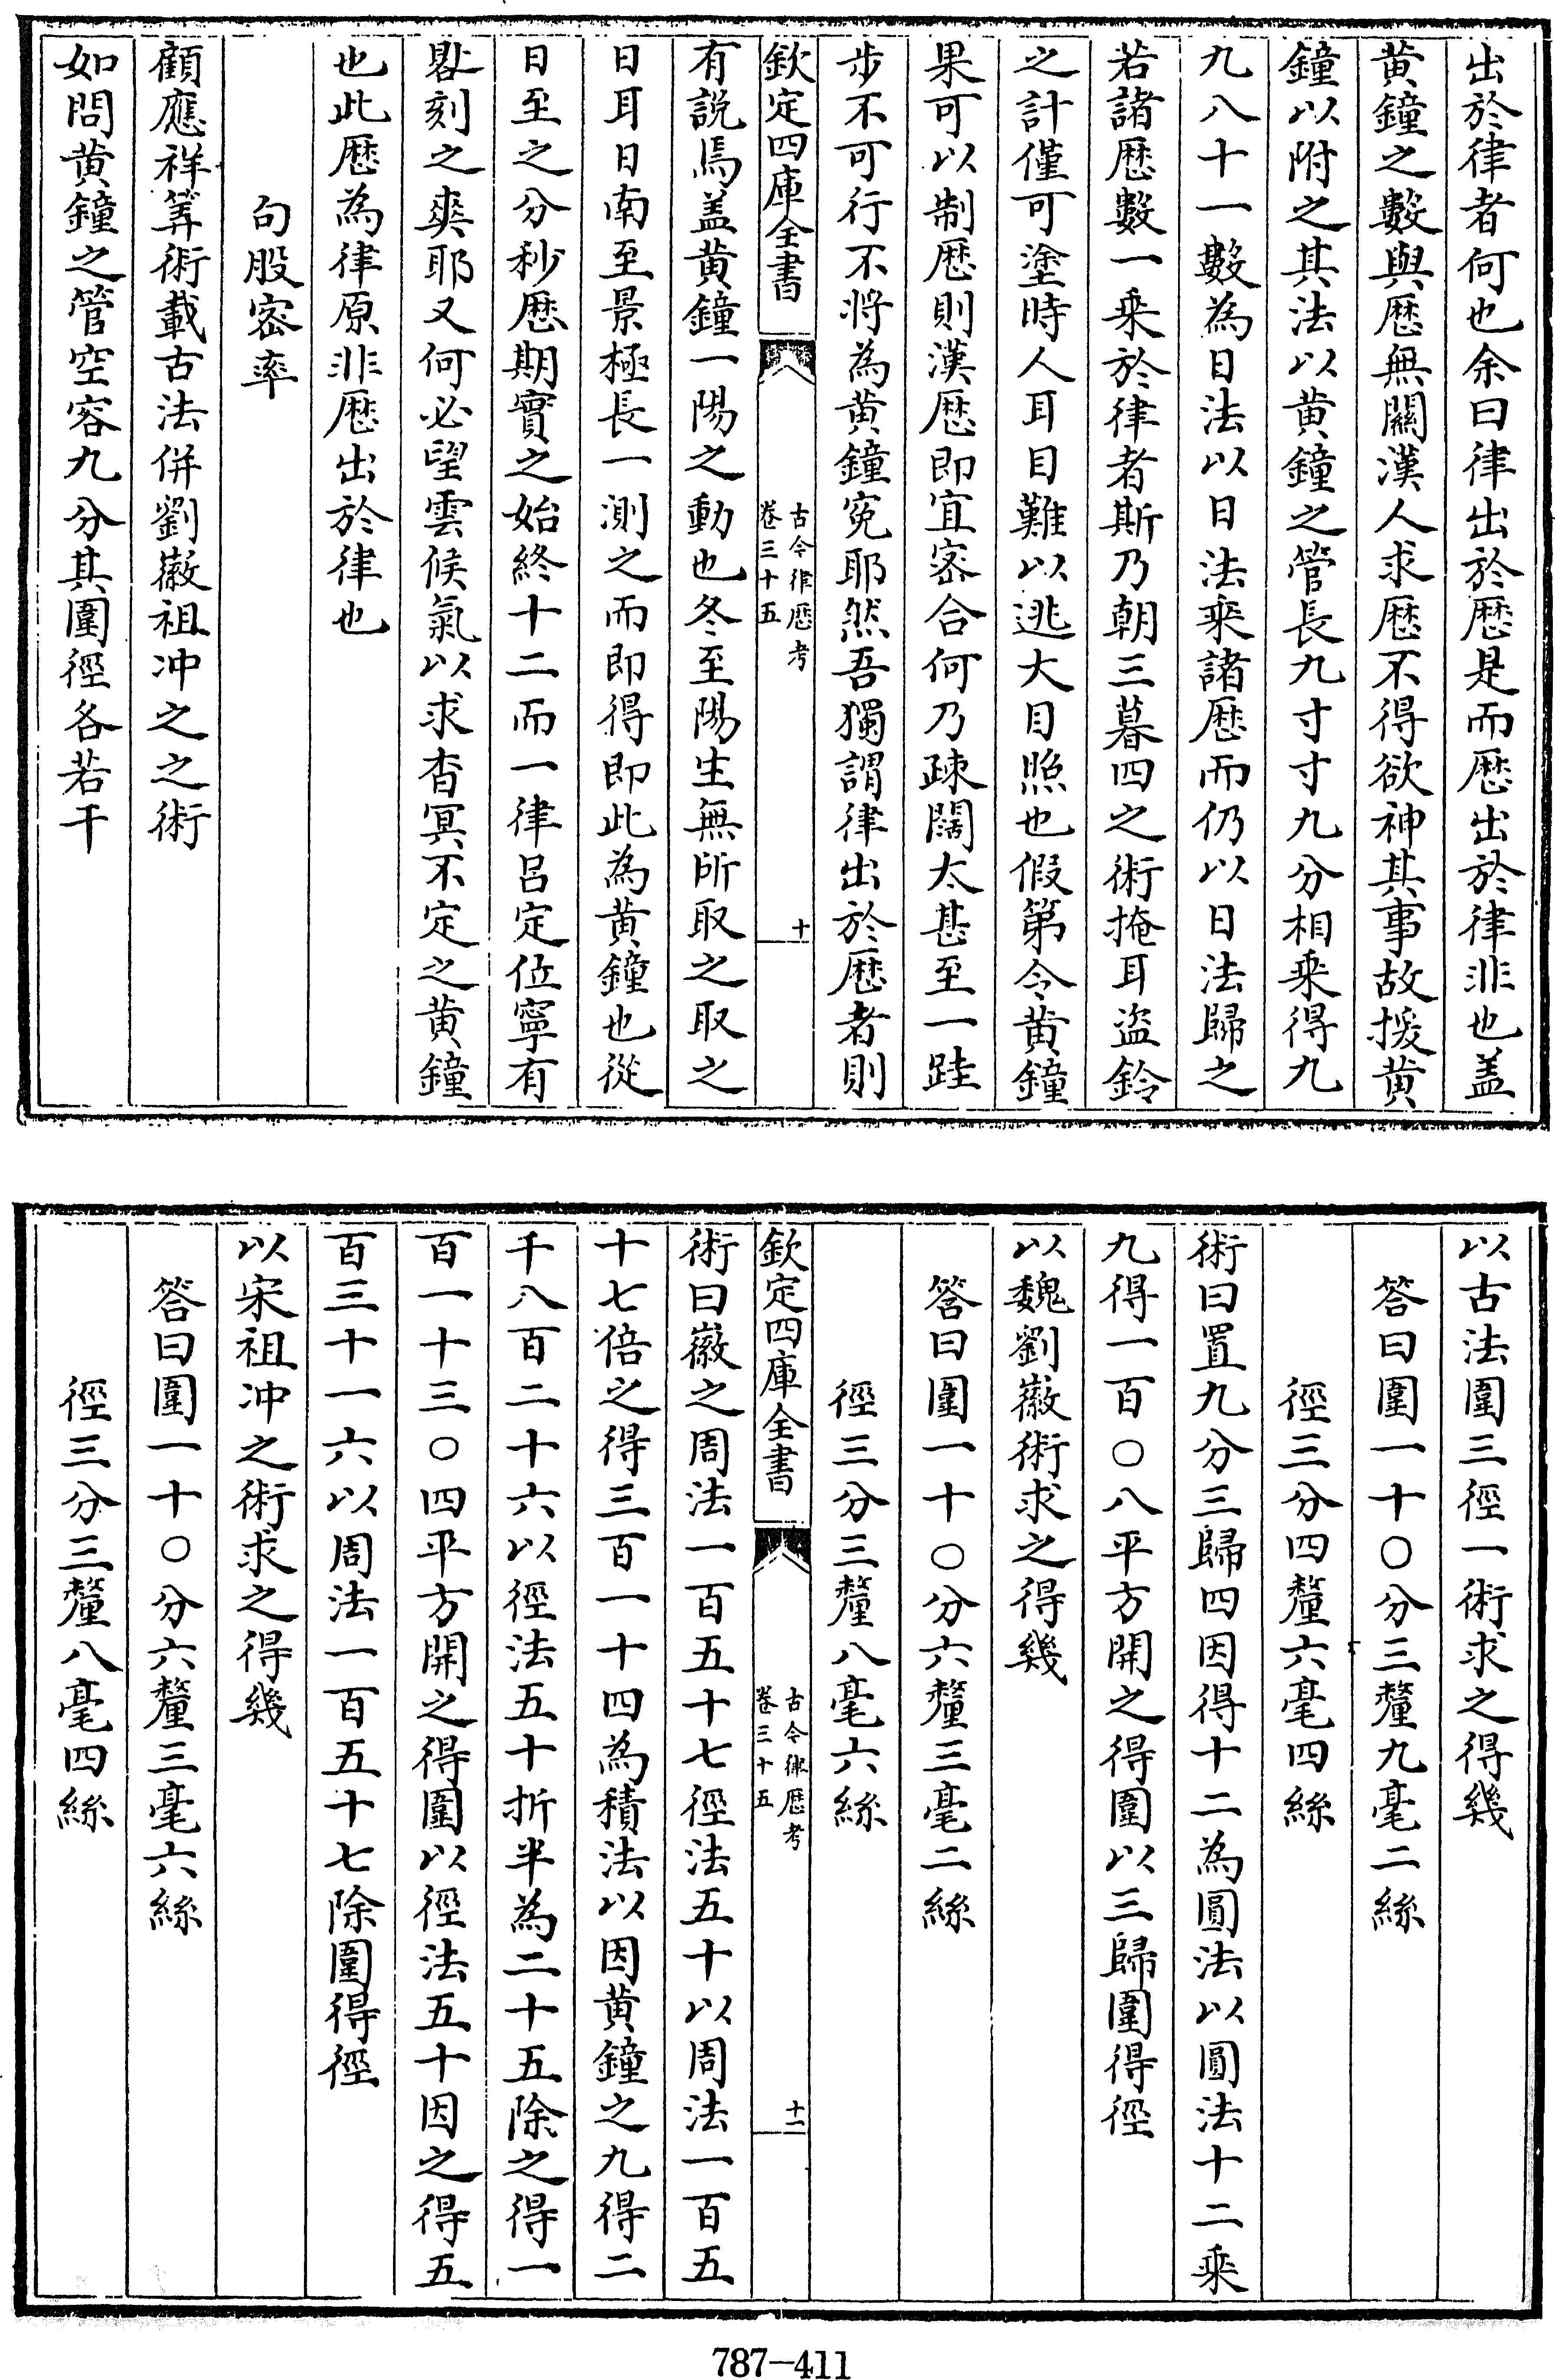 出於律者何也余曰律出於歷是而歷出於律非也盖
黄鐘之數與歷無關漢人求歷不得欲神其事故援黄
鐘以附之其法以黄鐘之管長九寸寸九分相乘得九
九八十一數為日法以日法乘諸歷而仍以日法歸之
若諸歷數一乘於律者斯乃朝三暮四之術掩耳盗鈴
之計僅可塗時人耳目難以逃大目照也假第令黄鐘
果可以制歷則漢歷即宜宻合何乃疎濶太甚至一跬
步不可行不将為黄鐘寃耶然吾獨謂律出於歷者則
欽定四庫全書
古今律歷考
卷三十五
十
有説焉盖黄鐘一陽之動也冬至陽生無所取之取之
日耳日南至景極長一測之而即得即此為黄鐘也從
日至之分秒歷期實之始終十二而一律吕定位寧有
晷刻之爽耶又何必望雲候氣以求杳冥不定之黄鐘
也此歷為律原非歷出於律也
句股宻率
顧應祥筭術載古法併劉徽祖冲之之術
如問黄鐘之管空容九分其圍徑各若干
以古法圍三徑一術求之得幾
答曰圍一十〇分三釐九毫二絲
徑三分四釐六毫四絲
術曰置九分三歸四因得十二為圓法以圓法十二乘
九得一百〇八平方開之得圍以三歸圍得徑
以魏劉徽術求之得幾
答曰圍一十〇分六釐三毫二絲
徑三分三釐八毫六絲
欽定四庫全書
古今律歷考
卷三十五
十一
術曰徽之周法一百五十七徑法五十以周法一百五
十七倍之得三百一十四為積法以因黄鐘之九得二
千八百二十六以徑法五十折半為二十五除之得一
百一十三〇四平方開之得圍以徑法五十因之得五
百三十一六以周法一百五十七除圍得徑
以宋祖冲之術求之得幾
答曰圍一十〇分六釐三毫六絲
徑三分三釐八毫四絲
787-411